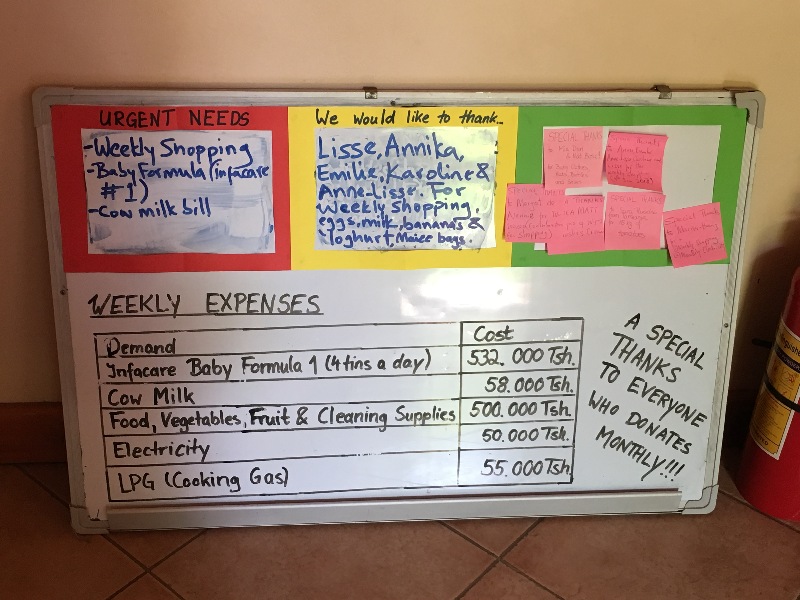 URGENT NEEDS
-Weekly Shopping
-Baby Formula (infacare
#1)
-Cow milk bill
We would like to thank...
Lisse, Annika,
Emilie, Karoline &
Anne-Lisse. For
Weekly Shopping,
eggs, milk, bananas &
Yoghurt, Maize bags.
SPECIAL THANKS
SPECIAL
THANKS
SPECIAL THANKS
Special Thanks
WEEKLY EXPENSES
Demand Cost
Infacare Baby Formula 1 (4 tins a day) 532.000 Tsh.
Cow Milk 58.000 Tsh.
Food, Vegetables, Fruit & Cleaning Supplies 500.000 Tsh.
Electricity 50.000 Tsh.
LPG (Cooking Gas) 55.000 Tsh.
A SPECIAL
THANKS
TO EVERYONE
WHO DONATES
MONTHLY!!!